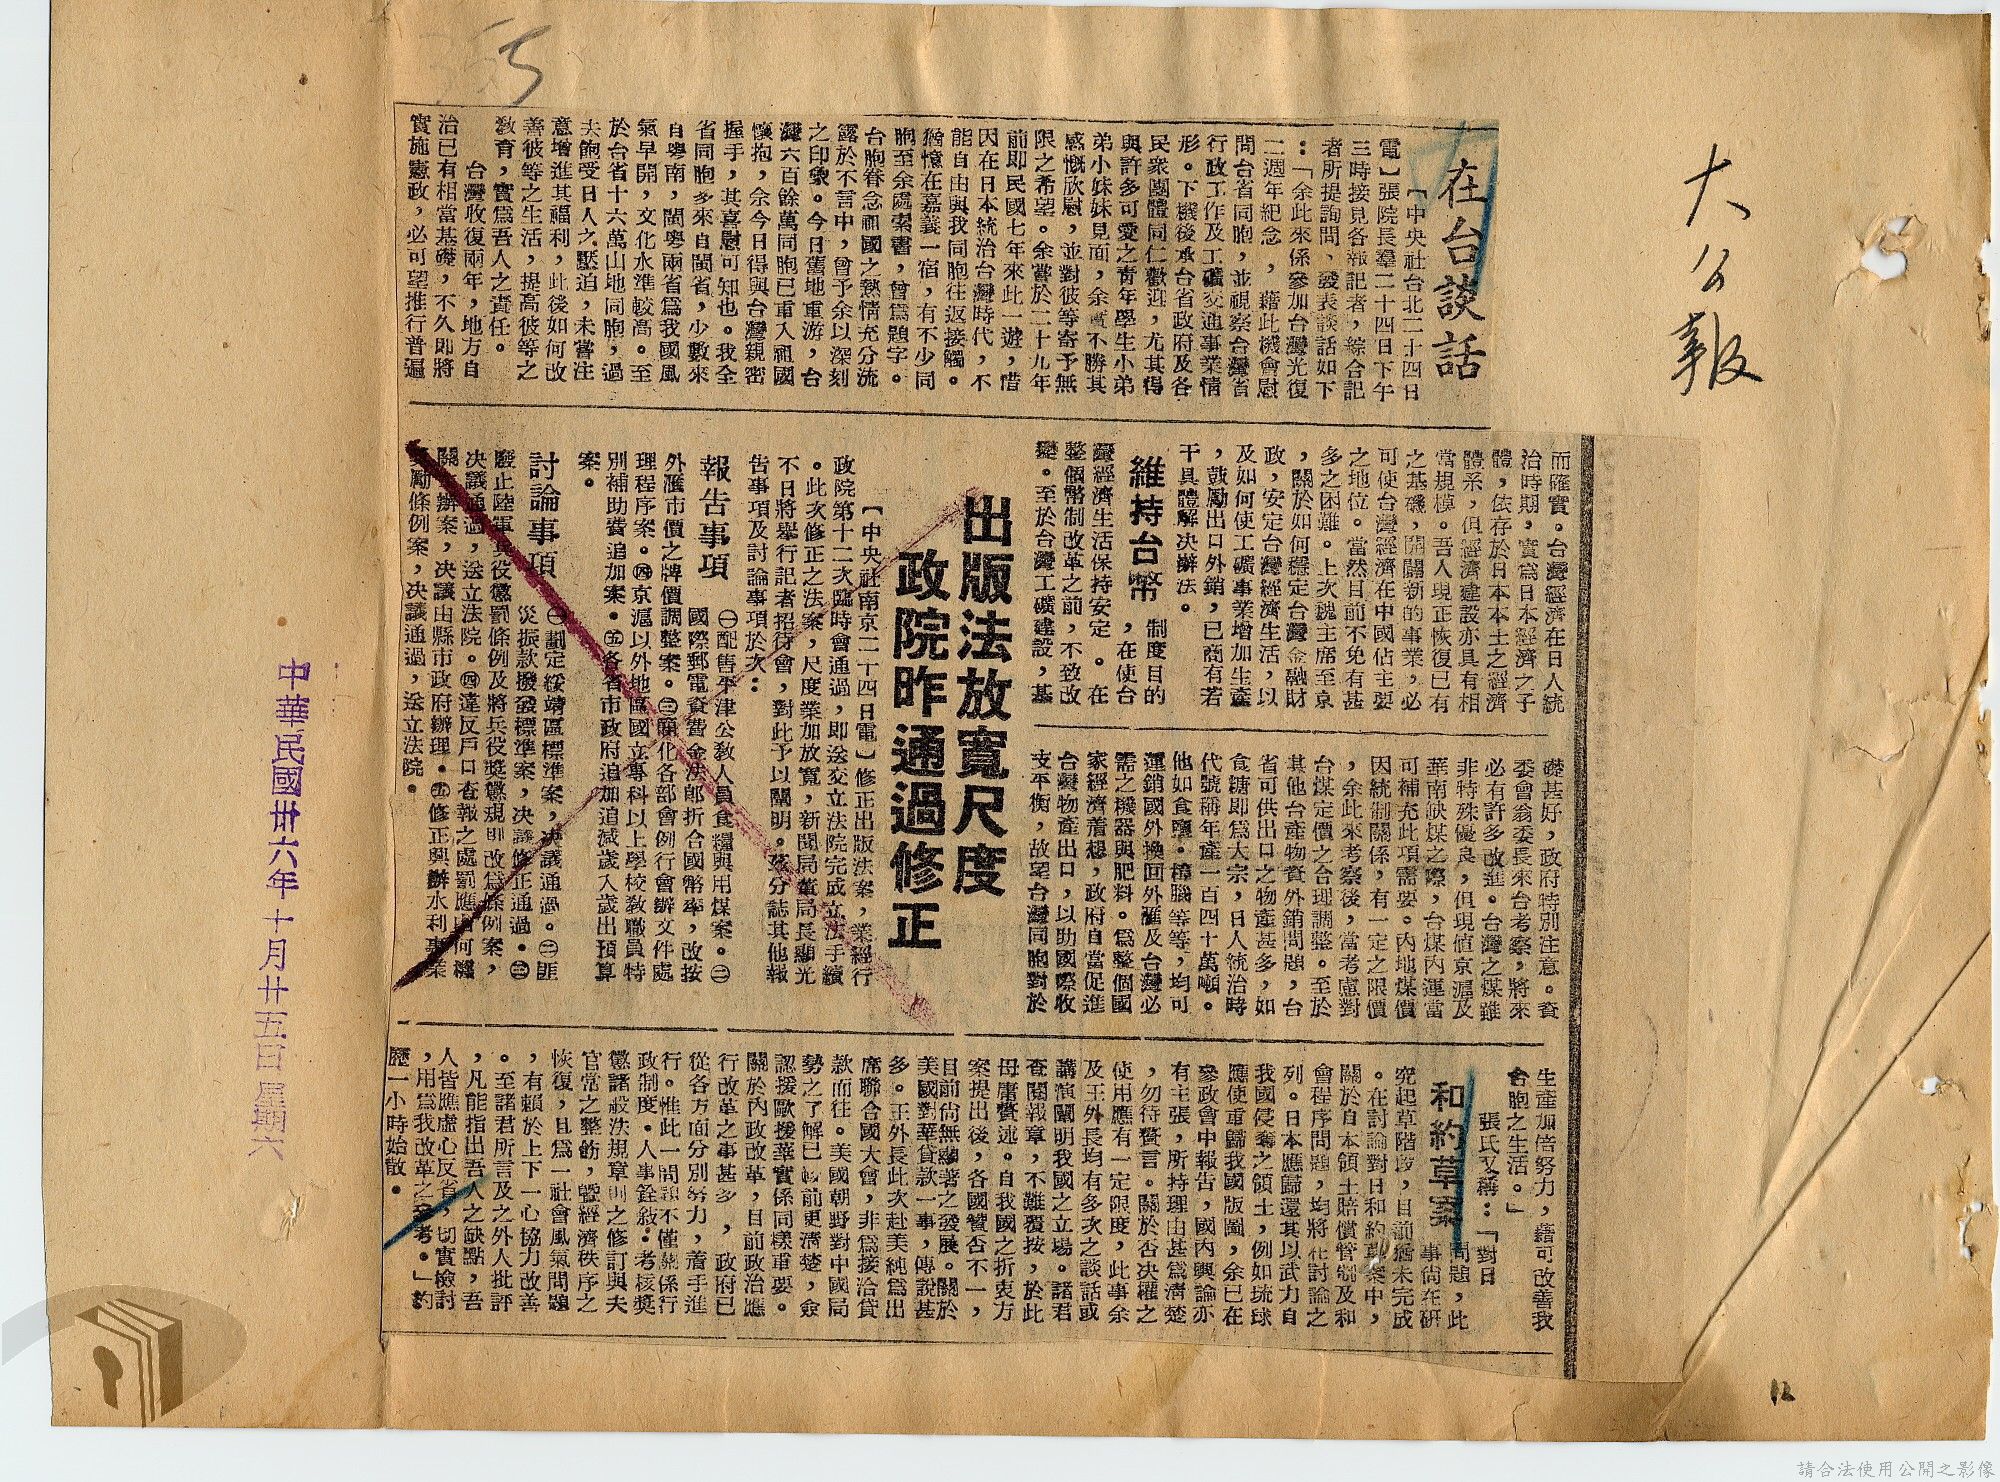 355
大公報
在台談話
【中央社台北二十四日
電】張院長羣二十四日下午
三時接見各報記者，綜合記
者所提詢問、發表談話如下
：「余此來係參加台灣光復
二週年紀念，藉此機會慰
問台省同胞，並視察台灣省
行政工作及工礦交通事業情
形。下機後承台省政府及各
民衆團體同仁歡迎，尤其得
與許多可愛之青年學生小弟
弟小妹妹見面，余實不勝其
感慨欣慰，並對彼等寄予無
限之希望。余嘗於二十九年
前即民國七年來此一遊，惜
因在日本統治台灣時代，不
能自由與我同胞往返接觸。
猶憶在嘉義一宿，有不少同
胞至余處索書，曾爲題字。
台胞眷念祖國之熱情充分流
露於不言中，曾予余以深刻
之印象。今日舊地重游，台
灣六百餘萬同胞已重入祖國
懷抱，余今日得與台灣親密
握手，其喜慰可知也。我全
省同胞多來自閩省，少數來
自粵南，閩粵兩省爲我國風
氣早開，文化水準較高。至
於台省十六萬山地同胞，過
去飽受日人之壓迫，未嘗注
意增進其福利，此後如何改
善彼等之生活，提高彼等之
教育，實爲吾人之責任。
台灣收復兩年，地方自
治已有相當基礎，不久即將
實施憲政，必可望推行普遍
而確實。台灣經濟在日人統
治時期，實爲日本經濟之子
體，依存於日本本土之經濟
體系，但經濟建設亦具有相
當規模。吾人現正恢復已有
之基礎，開闢新的事業，必
可使台灣經濟在中國佔主要
之地位。當然目前不免有甚
多之困難。上次魏主席至京
，關於如何穩定台灣金融財
政，安定台灣經濟生活，以
及如何使工礦事業增加生產
，鼓勵出口外銷，已商有若
干具體解決辦法。
維持台幣
制度目的
，在使台
灣經濟生活保持安定。在
整個幣制改革之前，不致改
變。至於台灣工礦建設，基
礎甚好，政府特別注意。資
委會翁委長來台考察，將來
必有許多改進。台灣之煤雖
非特殊優良，但現值京滬及
華南缺煤之際，台煤內運當
可補充此項需要。內地煤價
因統制關係，有一定之限價
，余此來考察後，當考慮對
台煤定價之合理調整。至於
其他台產物資外銷問題，台
省可供出口之物產甚多，如
食糖即爲大宗，日人統治時
代號稱年產一百四十萬噸。
他如食鹽，樟腦等等，均可
運銷國外換回外匯及台灣必
需之機器與肥料。爲整個國
家經濟着想，政府自當促進
台灣物產出口，以助國際收
支平衡，故望台灣同胞對於
生產加倍努力，藉可改善我
台胞之生活。」
張氏又稱：「對日
和約草案
問題，此
事尚在研
究起草階段，目前猶未完成
。在討論對日和約草案中，
關於自本領土賠償管制及和
會程序問題，均將在討論之
列。日本應歸還其以武力自
我國侵奪之領土，例如琉球
應使重歸我國版圖，余已在
參政會中報告，國內輿論亦
有主張，所持理由甚爲清楚
，勿待贅言。關於否決權之
使用應有一定限度，此事余
及王外長均有多次之談話或
講演闡明我國之立場。諸君
查閱報章，不難覆按，於此
毋庸贅述。自我國之折衷方
案提出後，各國贊否不一，
目前尚無顯著之發展。關於
美國對華貸款一事，傳說甚
多。王外長此次赴美純爲出
席聯合國大會，非爲接洽貸
款而往。美國朝野對中國局
勢之了解已較前更清楚，僉
認援歐援華實係同樣重要。
關於內政改革，目前政治應
行改革之事甚多，政府已
從各方面分別努力，着手進
行。惟此一問題不僅關係行
政制度。人事銓敍：考核獎
懲諸般法規章則之修訂與夫
官常之整飭，暨經濟秩序之
恢復，且爲一社會風氣問題
，有賴於上下一心協力改善
。至諸君所言及之外人批評
，凡能指出吾人之缺點，吾
人皆應虛心反省，切實檢討
，用爲我改革之參考。」約
歷一小時始散。
出版法放寬尺度
政院昨通過修正
【中央社南京二十四日電】修正出版法案，業經行
政院第十二次臨時會通過，即送交立法院完成立法手續
。此次修正之法案，尺度業加放寬，新聞局董局長顯光
不日將舉行記者招待會，對此予以闡明。茲分誌其他報
告事項及討論事項於次：
報告事項
㊀配售平津公教人員食糧與用煤案。㊁
國際郵電資費金法郎折合國幣率，改按
外滙市價之牌價調整案。㊂簡化各部會例行會辦文件處
理程序案。㊃京滬以外地區國立專科以上學校教職員特
別補助費追加案。㊄各省市政府追加追減歲入歲出預算
案。
討論事項
㊀劃定綏靖區標準案，決議通過。㊁匪
災振款撥發標準案，決議修正通過。㊂
廢止陸軍兵役懲罰條例及將兵役獎懲規則改爲條例案，
決議通過，送立法院。㊃違反戶口查報之處罰應由何機
關辦案，決議由縣市政府辦理。㊄修正興辦水利事業
獎勵條例案，決議通過，送立法院。
中華民國卅六年十月廿五日星期六
12
請合法使用公開之影像